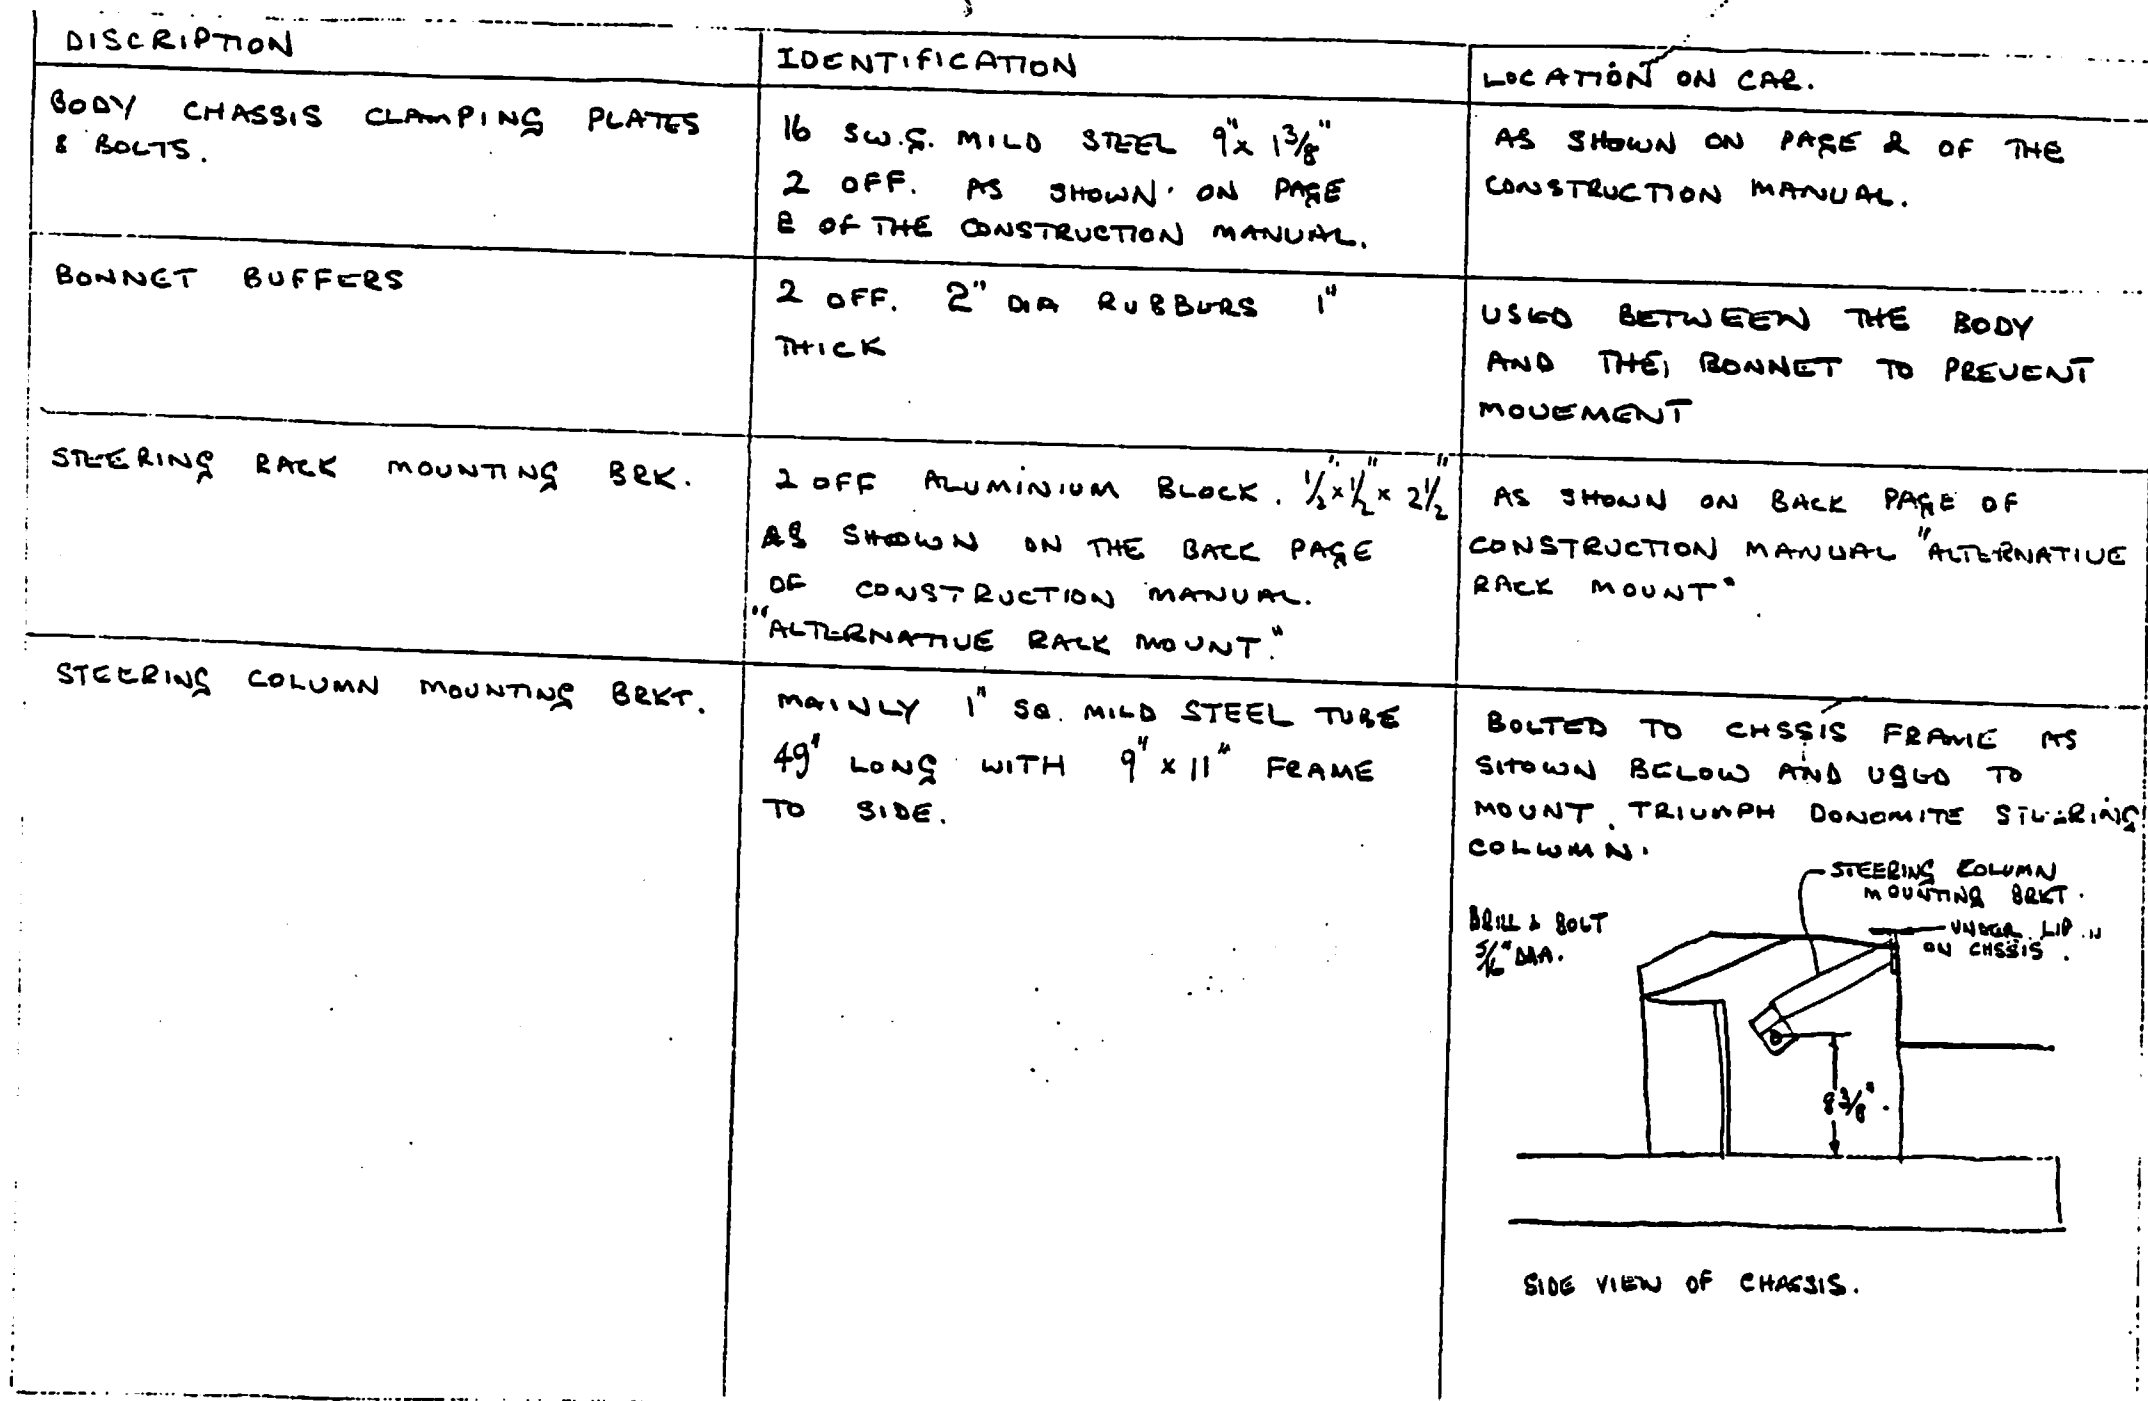 DISCRIPTION
IDENTIFICATION
LOCATION ON CAR.
BODY CHASSIS CLAMPING PLATES
& BOLTS.
16 SW.G. MILD STEEL 9" x 1 3/8"
2 OFF. AS SHOWN ON PAGE
2 OF THE CONSTRUCTION MANUAL.
AS SHOWN ON PAGE 2 OF THE
CONSTRUCTION MANUAL.
BONNET BUFFERS
2 OFF. 2" DIA RUBBURS 1"
THICK
USED BETWEEN THE BODY
AND THE BONNET TO PREVENT
MOVEMENT
STEERING RACK MOUNTING BRK.
2 OFF ALUMINIUM BLOCK. 1/2" x 1/2" x 2 1/2"
AS SHOWN ON THE BACK PAGE
OF CONSTRUCTION MANUAL.
"ALTERNATIVE RACK MOUNT."
AS SHOWN ON BACK PAGE OF
CONSTRUCTION MANUAL "ALTERNATIVE
RACK MOUNT"
STEERING COLUMN MOUNTING BRKT.
MAINLY 1" SQ. MILD STEEL TUBE
49" LONG WITH 9" x 11" FRAME
TO SIDE.
BOLTED TO CHSSIS FRAME AS
SHOWN BELOW AND USED TO
MOUNT TRIUMPH DONOMITE STEERING
COLUMN.
STEERING COLUMN
MOUNTING BRKT.
DRILL & BOLT
5/16" DIA.
UNDER LIP
ON CHSSIS.
8 3/8".
SIDE VIEW OF CHASSIS.